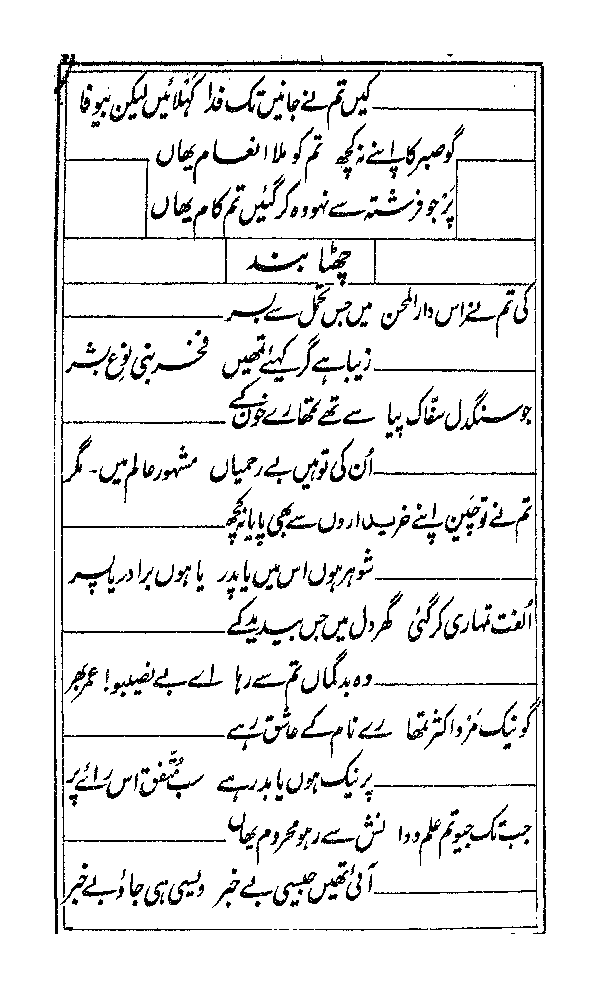 کیں تم نے جانیں تک فدا کہلائیں لیکن بیوفا
گو صبر کا اپنے نہ کچھ تم کو ملا انعام یھاں
پَر جو فرشتہ سے نہو وہ کر گئیں تم کام یھاں
چھٹا بند
کی تم نے اس دار المحن میں جس تحمل سے بسر
زیبا ہے گر کہئے تمھیں فخر بنی نوع بشر
جو سنگدل سفّاک پیاسے تھے تمھارے خون کے
اُن کی تو ہیں بے رحمیاں مشہور عالم میں۔ مگر
تم نے تو چَین اپنے خریداروں سے بھی پایا نہ کچھ
شوہر ہوں اس میں یا پدر یا ہوں برادر یا پسر
اُلفت تمہاری کر گئی گھر دل میں جس بیدید کے
وہ بدگماں تم سے رہا اے بے نصیبو! عمر بھر
گو نیک مَرد اکثر تمھارے نام کے عاشق رہے
پر نیک ہوں یا بد رہے سب متّفق اس رائے پر
جب تک جیو تم علم و دانش سے رہو محروم یھاں
آئی تھیں جیسی بے خبر ویسی ہی جاؤ بے خبر